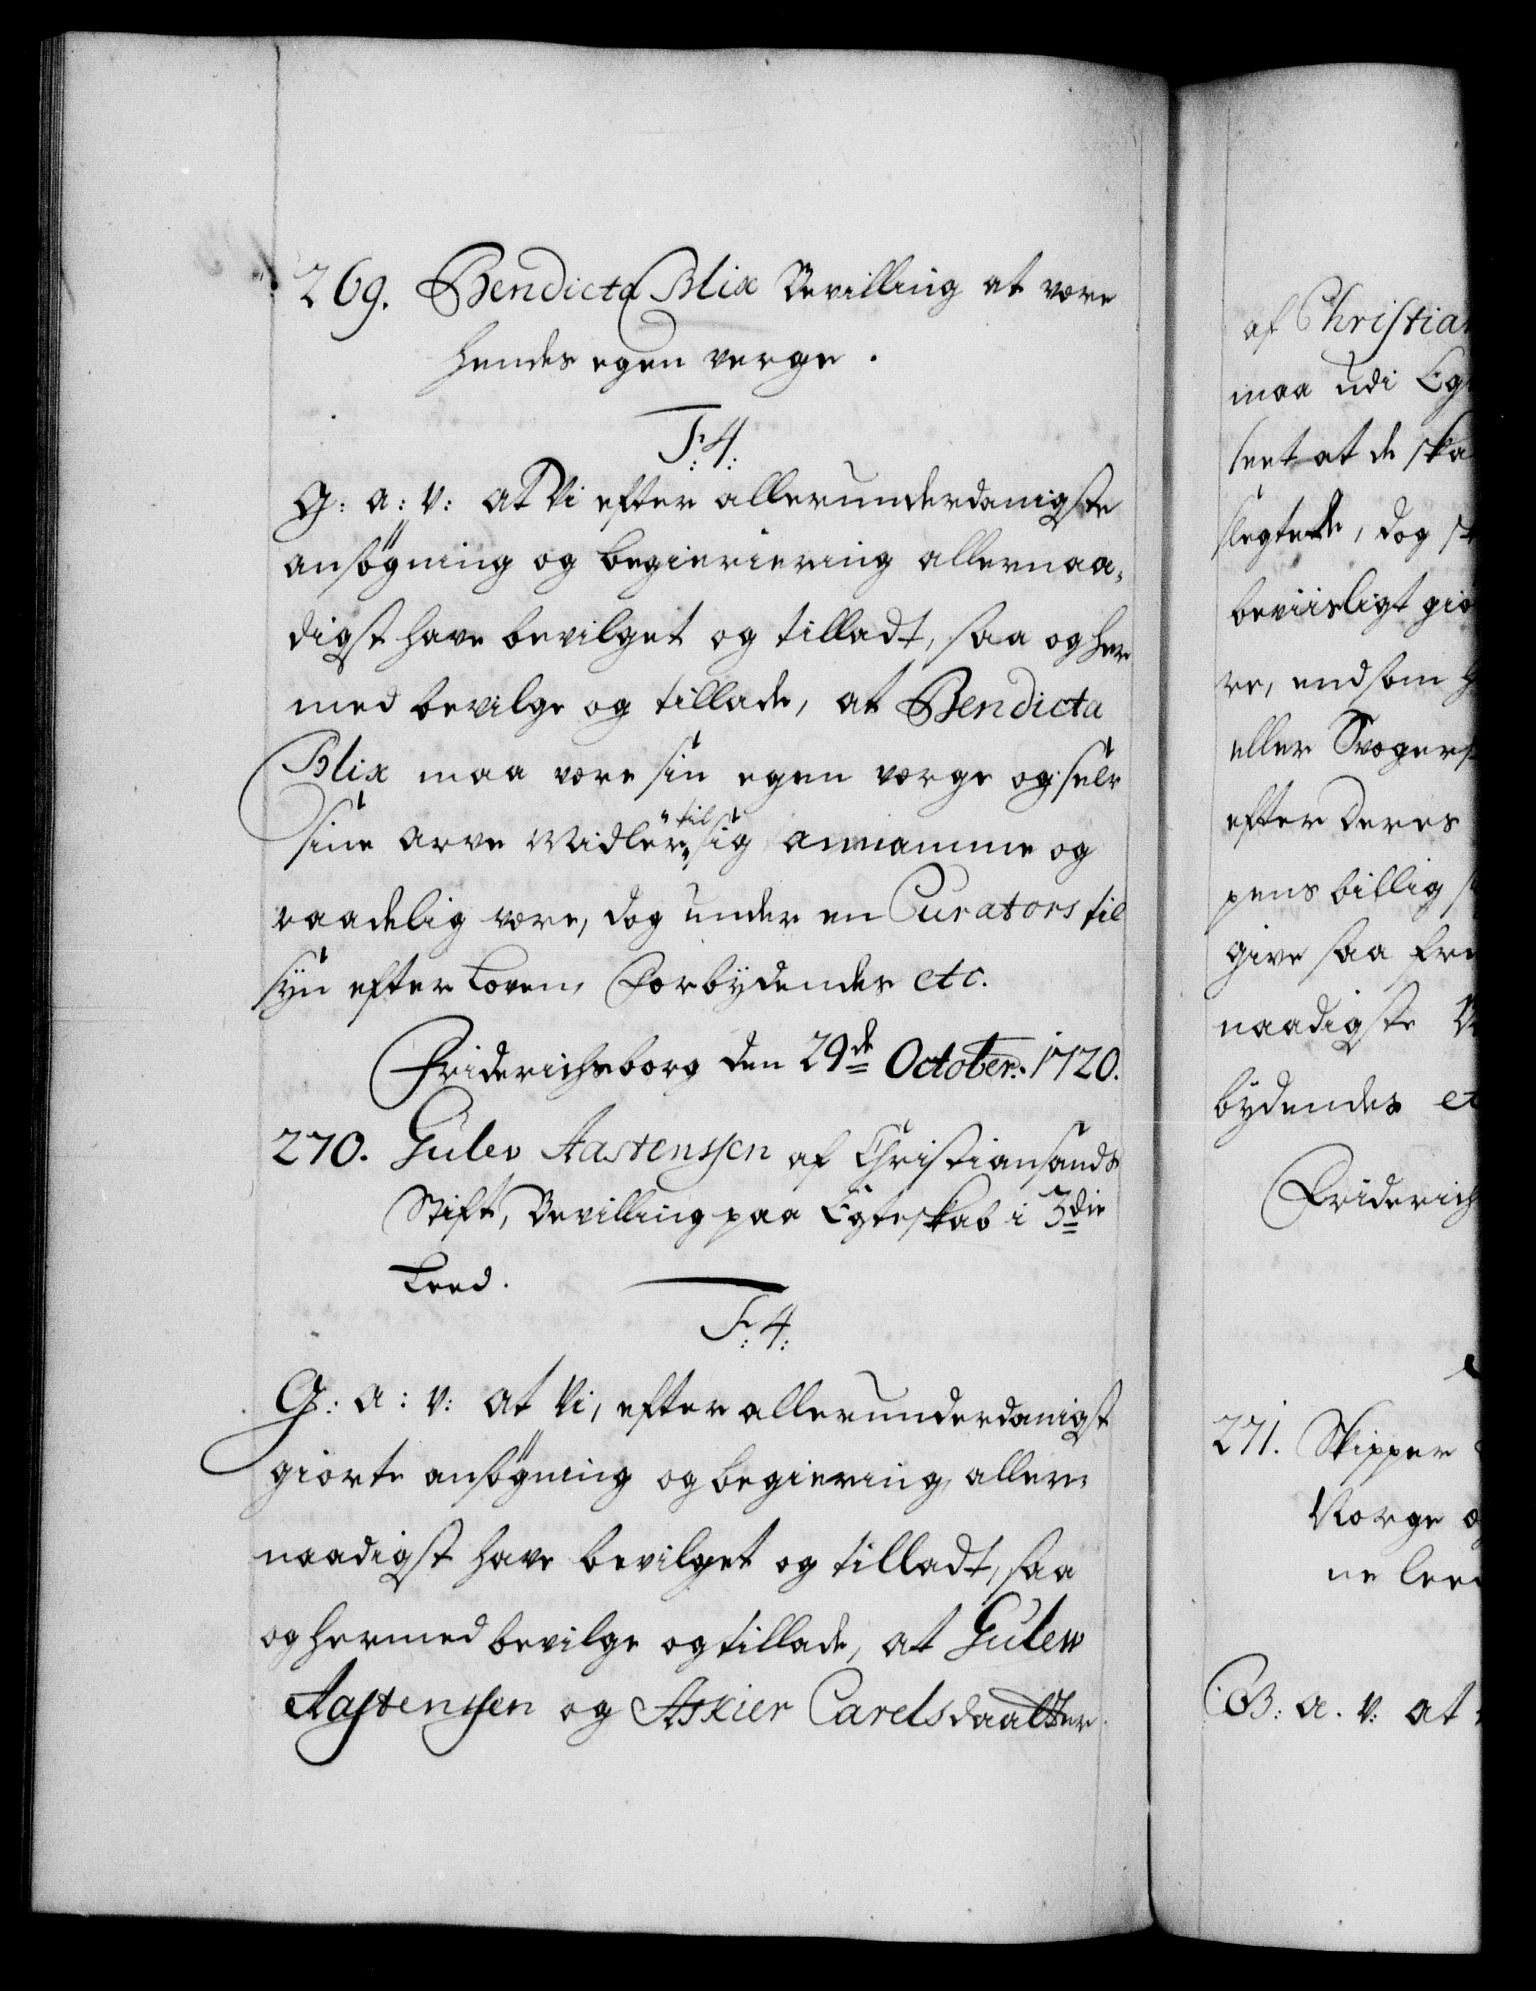 269. Bendicta Blix Bevilling at være
hendes egen verge.
F: 4:
G: a: v: at Vi efter allerunderdanigste
ansøgning og begieriering allernaa-
digst have bevilget og tilladt, saa og her
med bevilge og tillade, at Bendicta
Blix maa være sin egen værge og selv
sine arve Midler til sig annamme og
raadelig være, dog under en Curators til
syn efter Loven, Forbydendes etc.
Friderichsborg den 29de October: 1720.
270. Gulev Aastenssen af Christiansands
Stift, Bevilling paa Egteskab i 3die
Leed.
F: 4:
G: a: v: at Vi, efter allerunderdanigst
giorte ansøgning og begiering, aller-
naadigst have bevilget og tilladt, saa
og hermed bevilge og tillade, at Gulev
Aastenssen og Askier Carelsdaatter
af Christian
maa udi Eg
seet at de ska
slegtede, dog
beviisligt giø
re, end som
eller Svogers
efter deres
pens billig
give saa fre
naadigste
bydendes et
Friderich
271. Skipper
Norge o
ne leed
G: a. v: at